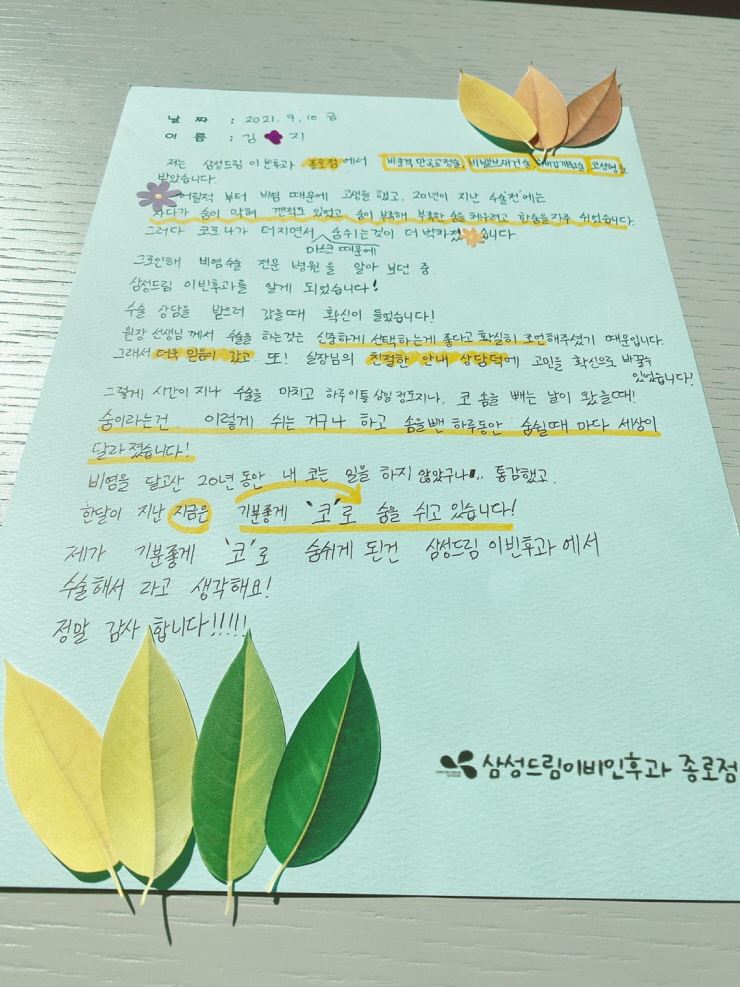 날 짜 : 2021. 9. 10 금
이 름 : 김 지
저는 삼성드림 이빈후과 종로점에서 비중격만곡교정술, 비밸브재건술, 코성형을
받았습니다.
어릴적 부터 비염 때문에 고생을 했고, 20년이 지난 수술전에는
자다가 숨이 막혀 깬적도 있었고 숨이 부족해 부족한 숨을 채우려고 한숨을 자주 쉬었습니다.
그러다 코로나가 터지면서 숨쉬는것이 더 벅차졌습니다.
마스크 때문에
그로인해 비염수술 전문 병원을 알아 보던 중
삼성드림 이빈후과를 알게 되었습니다!
수술 상담을 받으러 갔을때 확신이 들었습니다!
원장 선생님께서 수술을 하는것은 신중하게 선택하는게 좋다고 확실히 조언해주셨기 때문입니다.
그래서 더욱 믿음이 갔고 또! 실장님의 친절한 안내 상담덕에 고민을 확신으로 바꿀수
있었습니다!
그렇게 시간이 지나 수술을 마치고 하루이틀 삼일 정도지나, 코 솜을 빼는 날이 왔을때!
숨이라는건 이렇게 쉬는 거구나 하고 솜을뺀 하루동안 숨쉴때 마다 세상이
달라졌습니다!
비염을 달고산 20년 동안 내 코는 일을 하지 않았구나.. 통감했고.
한달이 지난 지금은 기분좋게 '코'로 숨을 쉬고 있습니다!
제가 기분좋게 '코'로 숨쉬게 된건 삼성드림 이빈후과에서
수술해서 라고 생각해요!
정말 감사 합니다!!!!!
삼성드림이비인후과 종로점